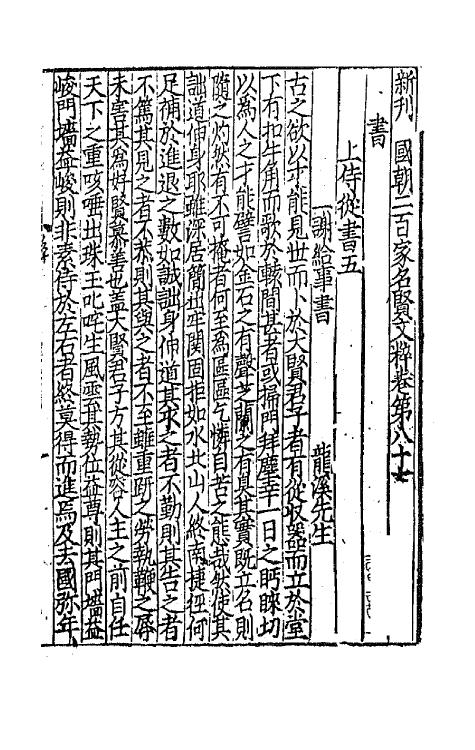 新刊國朝二百家名賢文粹卷第八十七
書
上侍從書五
一謝給事書 龍溪先生
古之欲以才能見世而卜於大賢君子者有從收器而立於堂
下有扣牛角而歌於轅間甚者或掃門拜塵幸一日之眄睞切
以為人之才能譬如金石之有聲芝蘭之有臭其實既立名則
隨之灼然有不可掩者何至為區區乞憐自苦之態哉然使其
詘道伸身耶雖深居簡出牢關固拒如水北山人終南捷徑何
足補於進退之數如誠詘身伸道其求之者不勤則其告之者
不篤其見之者不恭則其與之者不至雖重趼之勞執鞭之辱
未害其為好賢慕善也蓋大賢君子方其從容人主之前自任
天下之重咳唾出珠玉叱咤生風雲其勢位益尊則其門墻益
峻門墻益峻則非素侍於左右者終莫得而進焉及去國弥年